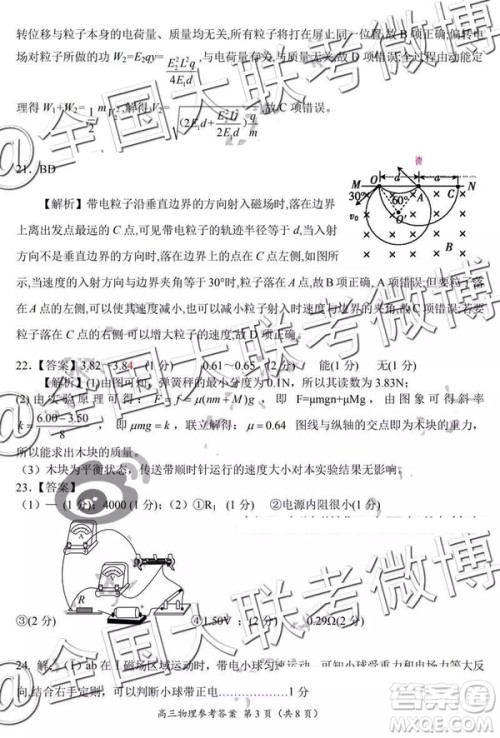 转位移与粒子本身的电荷量、质量均无关,所有粒子将打在屏上同一位置,故B项正确;偏转电
场对粒子所做的功 W₂=E₂qy= E₂²L²q/4E₁d ,与电荷量有关,与质量无关,故D项错误;全过程由动能定
理得 W₁+W₂= 1/2 mv² ,解得 故C项错误。
21. BD
【解析】带电粒子沿垂直边界的方向射入磁场时,落在边界
上离出发点最远的 C 点,可见带电粒子的轨迹半径等于 d,当入射
方向不是垂直边界的方向时,落在边界上的点都会在 C 点的左侧,
故当速度的入射方向与边界夹角等于30°时,落在A点,故B项正确,A项错误;但要粒子落
在A点的左侧,可以使其速度减小,也可以减小粒子射入时速度与边界的夹角,故C项错误;若要
粒子落在 A 点的右侧,可以增大粒子的速度,故D项正确。
22. 【答案】3.82~3.84 (1分) 0.61~0.65 (2分) 能(1分) 无(1分)
【解析】(1)由图可知,弹簧秤的最小分度为0.1N,所以其读数为3.83N;
(2)由实验原理可得:F=f=μ(nm+M)g,即 F=μmgn+μMg,由图象可得斜率
k= 6.00-3.50/8 ,即 μmg=k,联立解得:μ=0.64 图线与纵轴的交点即为μMg,
所以能求出木块的质量。
(3)木块为平衡状态,传送带顺时针运行的速度大小对本实验结果无影响。
23. 【答案】
(1)— (1分);4000(1分);(2)①R₁ (1分) ②电源内阻很小(1分)
A
R
③(2分) ④1.50V (2分) 0.29Ω(2分)
24. 解:(1)ab在Ⅰ磁场区域运动时,带电小球匀速运动,
结合右手定则,可以判断小球带正电…………1分
高三物理参考答案 第3页(共8页)
M O d A a C N
30° 60°
v₀ O'
@全国大联考微博
@全国大联考微博
答案圈